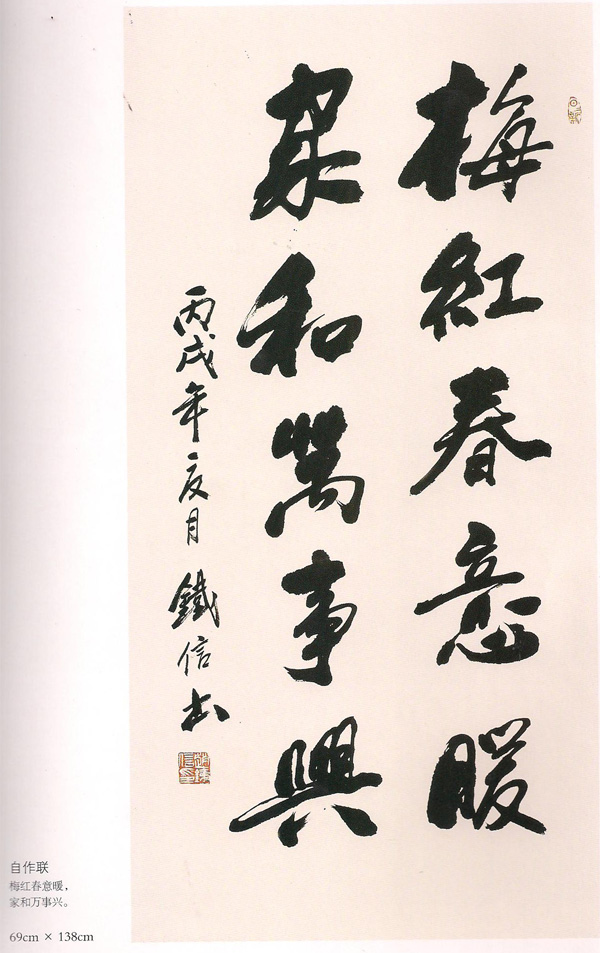 梅紅春意暖
家和萬事興
丙戌年二度月 鐵信書
自作联
梅红春意暖，
家和万事兴。
69cm × 138cm